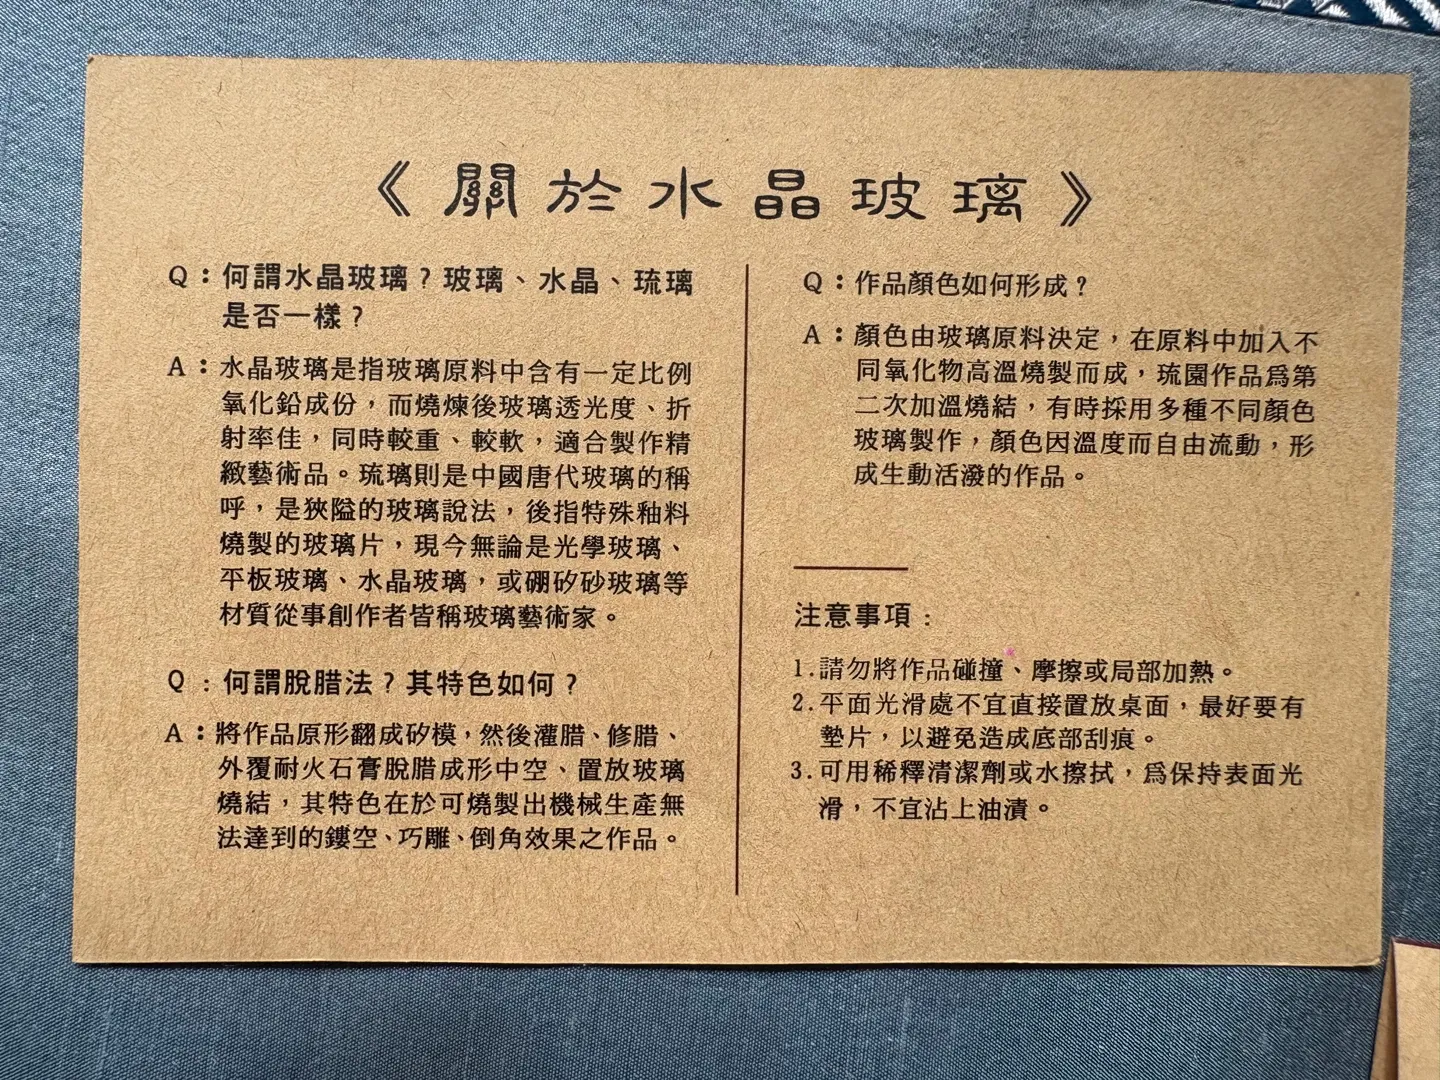 《關於水晶玻璃》
Q：何謂水晶玻璃？玻璃、水晶、琉璃
是否一樣？
A：水晶玻璃是指玻璃原料中含有一定比例
氧化鉛成份，而燒煉後玻璃透光度、折
射率佳，同時較重、較軟，適合製作精
緻藝術品。琉璃則是中國唐代玻璃的稱
呼，是狹隘的玻璃說法，後指特殊釉料
燒製的玻璃片，現今無論是光學玻璃、
平板玻璃、水晶玻璃，或硼矽砂玻璃等
材質從事創作者皆稱玻璃藝術家。
Q：何謂脫腊法？其特色如何？
A：將作品原形翻成矽模，然後灌腊、修腊、
外覆耐火石膏脫腊成形中空、置放玻璃
燒結，其特色在於可燒製出機械生產無
法達到的鏤空、巧雕、倒角效果之作品。
Q：作品顏色如何形成？
A：顏色由玻璃原料決定，在原料中加入不
同氧化物高溫燒製而成，琉園作品為第
二次加溫燒結，有時採用多種不同顏色
玻璃製作，顏色因溫度而自由流動，形
成生動活潑的作品。
注意事項：
1.請勿將作品碰撞、摩擦或局部加熱。
2.平面光滑處不宜直接置放桌面，最好要有
墊片，以避免造成底部刮痕。
3.可用稀釋清潔劑或水擦拭，為保持表面光
滑，不宜沾上油漬。